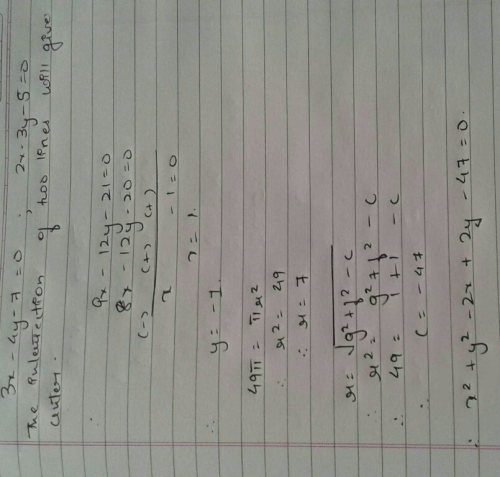 3x - 4y - 7 = 0 ; 2x - 3y - 5 = 0
The intersection of two lines will give
center.
9x - 12y - 21 = 0
8x - 12y - 20 = 0
(-) (+) (+)
x - 1 = 0
x = 1.
∴ y = -1.
49π = πr²
∴ r² = 49
∴ r = 7
r = √g² + f² - c
∴ r² = g² + f² - c
∴ 49 = 1 + 1 - c
∴ c = -47
∴ x² + y² - 2x + 2y - 47 = 0.